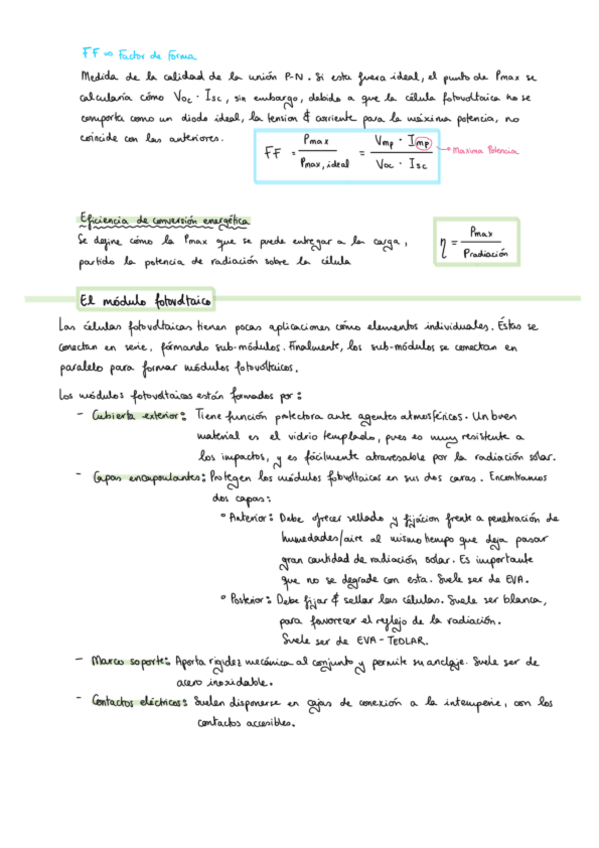 FF ∞ Factor de Forma
Medida de la calidad de la unión P-N. Si esta fuera ideal, el punto de Pmax se
calcularía cómo Voc · Isc, sin embargo, debido a que la célula fotovoltaica no se
comporta como un diodo ideal, la tension & corriente para la máxima potencia, no
coincide con las anteriores.
FF = Pmax / Pmax, ideal = Vmp · Imp / Voc · Isc
Maxima Potencia
Eficiencia de conversión energética
Se define cómo la Pmax que se puede entregar a la carga,
partido la potencia de radiación sobre la célula
η = Pmax / Pradiación
El módulo fotovoltaico
Las células fotovoltaicas tienen pocas aplicaciones cómo elementos individuales. Éstas se
conectan en serie, fórmando sub-módulos. Finalmente, los sub-módulos se conectan en
paralelo para formar módulos fotovoltaicos.
Los módulos fotovoltaicos están formados por:
- Cubierta exterior: Tiene función protectora ante agentes atmosféricos. Un buen
material es el vidrio templado, pues es muy resistente a
los impactos, y es fácilmente atravesable por la radiación solar.
- Capas encapsulantes: Protegen los módulos fotovoltaicos en sus dos caras. Encontramos
dos capas:
° Anterior: Debe ofrecer sellado y fijácion frente a penetración de
humedades/aire al mismo tiempo que deja pasar
gran cantidad de radiación solar. Es importante
que no se degrade con esta. Suele ser de EVA.
° Posterior: Debe fijar & sellar las células. Suele ser blanca,
para favorecer el reflejo de la radiación.
Suele ser de EVA - TEDLAR.
- Marco soporte: Aporta rigidez mecánica al conjunto y permite su anclaje. Suele ser de
acero inoxidable.
- Contactos eléctricos: Suelen disponerse en cajas de conexión a la intemperie, con los
contactos accesibles.